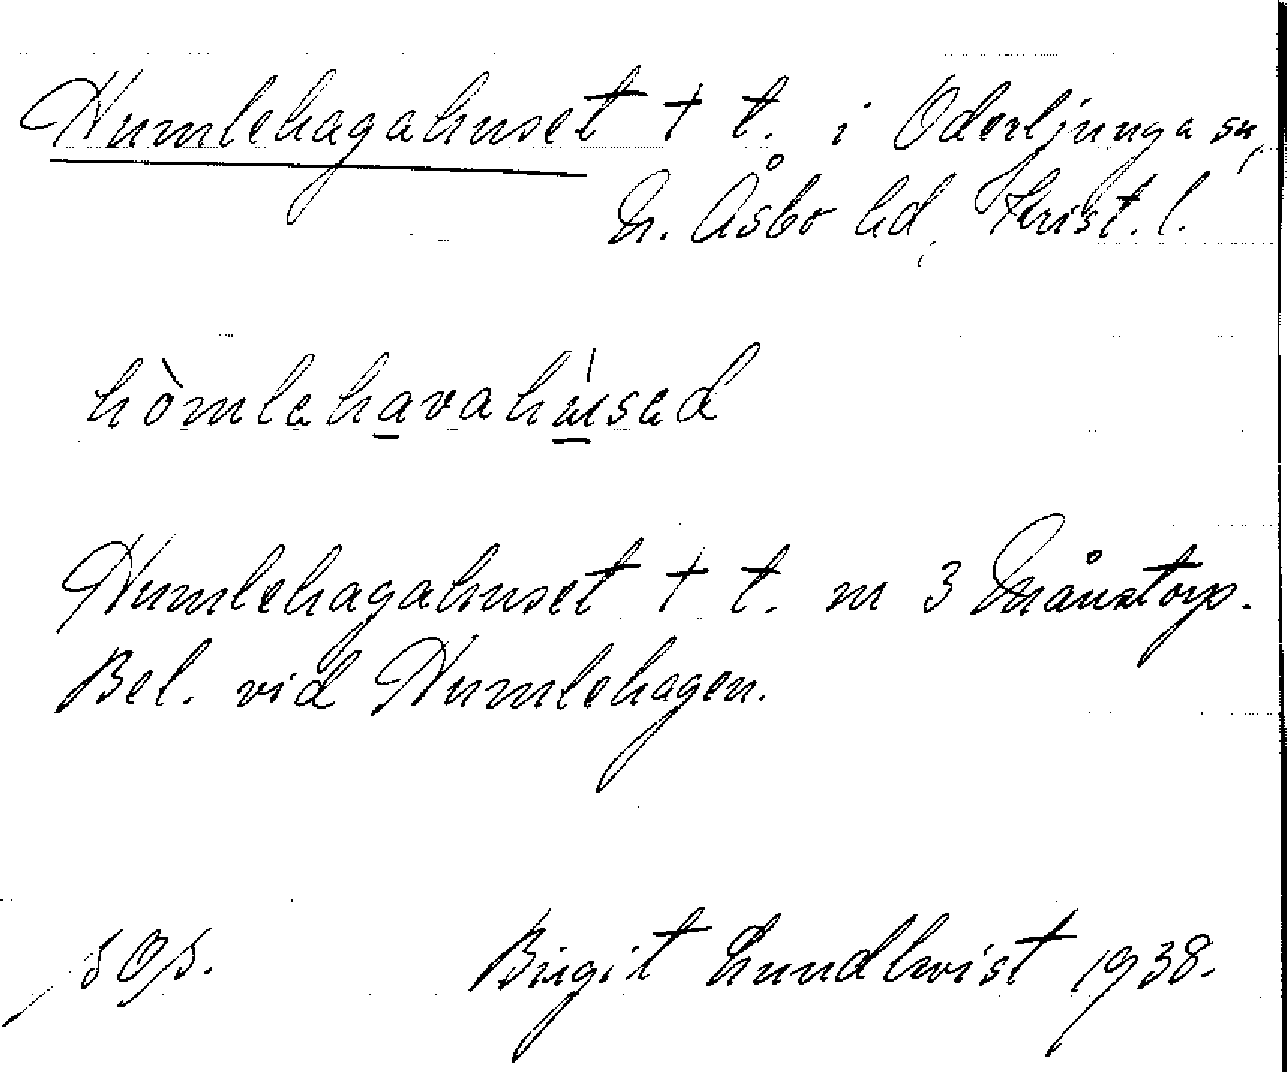 Humlehagahuset † t. i Oderljunga sn,
N. Åsbo hd, Krist. l.
hòmlahavahúsad
Humlehagahuset † t. m 3 Månstorp.
Bel. vid Humlehagen.
Birgit Lundkvist 1938.